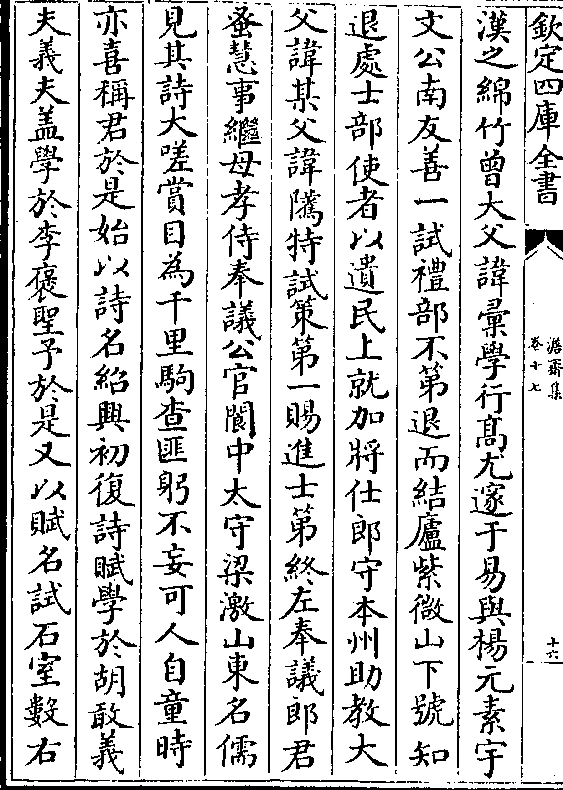 欽定四庫全書
澹齋集
卷十七
十六
漢之綿竹曾大父諱彚學行髙尤邃于易與楊元素宇
文公南友善一試禮部不第退而結廬紫微山下號知
退處士部使者以遺民上就加將仕郎守本州助教大
父諱某父諱騭特試策第一賜進士第終左奉議郎君
蚤慧事繼母孝侍奉議公官閬中太守梁激山東名儒
見其詩大嗟賞目為千里駒查匪躬不妄可人自童時
亦喜稱君於是始以詩名紹興初復詩賦學於胡敢義
夫義夫盖學於李褒聖予於是又以賦名試石室數右